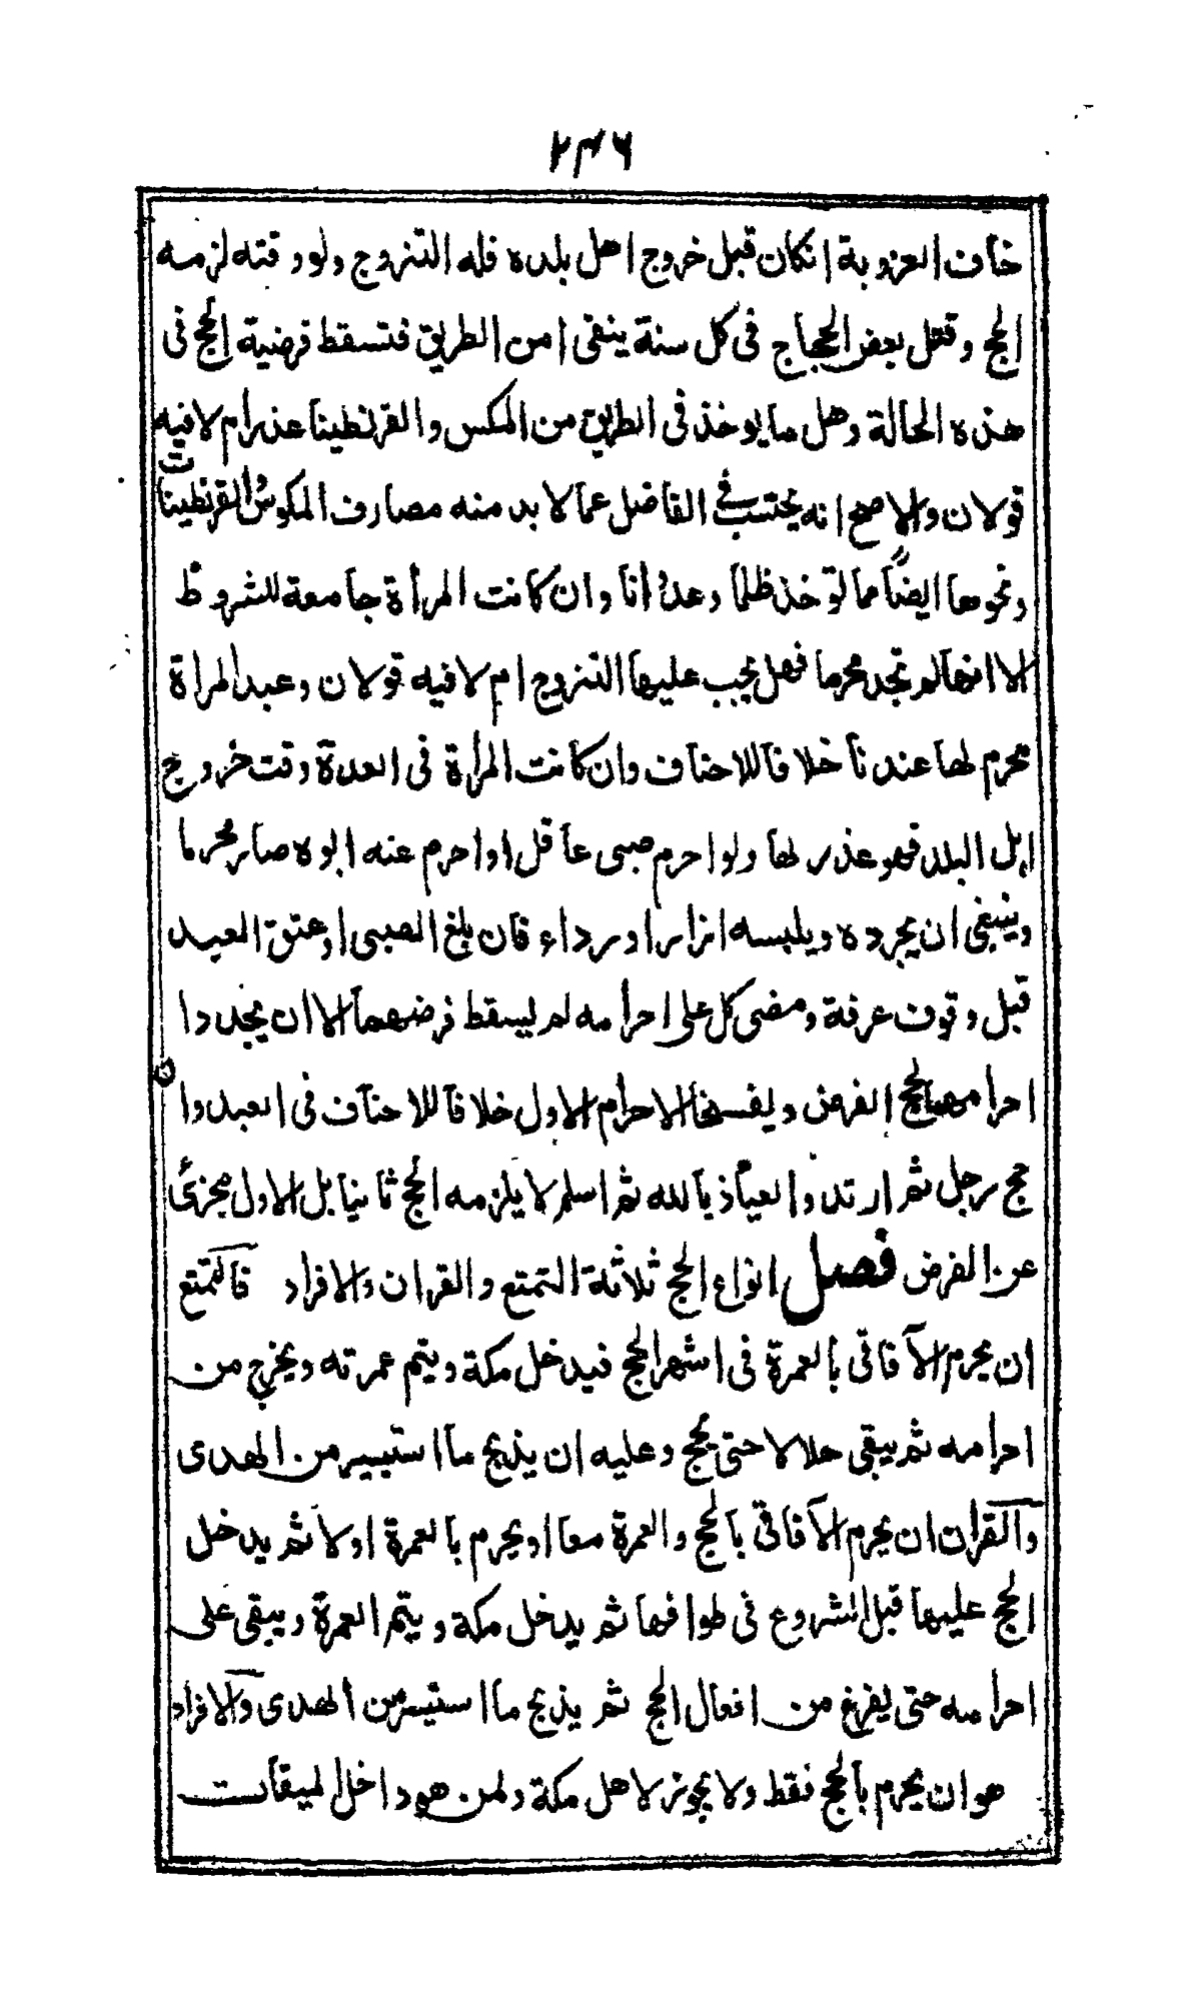 ٢٤٦
خاف العزوبة انكان قبل خروج اهل بلده فله التزوج ولو وقته لزمه
الحج وقتل بعض الحجاج فى كل سنة ينفى امن الطريق فتسقط فرضية الحج فى
هذه الحالة وهل ما يوخذ فى الطريق من المكس والقرنطينا عذر ام لا فيه
قولان والاصح انه يحتسب فى الفاضل عما لا بد منه مصارف المكوس والقرنطينات
ونحوهما ايضاً مما توخذ ظلما وعدوانا وان كانت المرأة جامعة للشروط
الا انها لم تجد محرما فهل يجب عليها التزوج ام لا فيه قولان وعبد المراة
محرم لها عندنا خلافا للاحناف وان كانت المرأة فى العدة وقت خروج
اهل البلد فهو عذر لها ولو احرم صبى عاقل او احرم عنه ابوه صار محرما
وينبغى ان يجرده ويلبسه ازارا ورداء فان بلغ الصبى او عتق العبد
قبل وقوف عرفة ومضى كل على احرامه لم يسقط فرضهما الا ان يجددا
احرامهما لحج الفرض ويفسخا الاحرام الاول خلافا للاحناف فى العبد وان
حج رجل ثم ارتد والعياذ بالله ثم اسلم لا يلزمه الحج ثانيا بل الاول مجزئ
عن الفرض فصل انواع الحج ثلاثة التمتع والقران والافراد فالتمتع
ان يحرم الآفاقى بالعمرة فى اشهر الحج فيدخل مكة ويتم عمرته ويخرج من
احرامه ثم يبقى حلالا حتى يحج وعليه ان يذبح ما استيسر من الهدى
والقران ان يحرم الآفاقى بالحج والعمرة معا او يحرم بالعمرة اولا ثم يدخل
الحج عليها قبل الشروع فى طوافها ثم يدخل مكة ويتم العمرة ويبقى على
احرامه حتى يفرغ من افعال الحج ثم يذبح ما استيسر من الهدى والافراد
هو ان يحرم بالحج فقط ولا يجوز لاهل مكة ولمن هو داخل الميقات